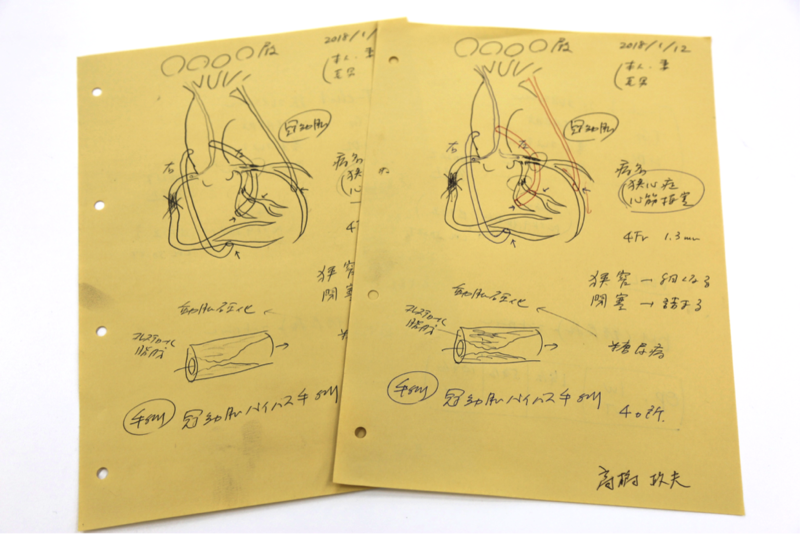 2018/1/
冠動脈
右
病名
狭心
心筋
4Fr
狭窄
閉塞
動脈硬化
コレステロール
脂肪
糖
手術
冠動脈バイパス手術
殿
2018/1/12
本人・妻
冠動脈
右
病名
狭心症
心筋梗塞
4Fr 1.3mm
狭窄 → 細くなる
閉塞 → 詰まる
動脈硬化
コレステロール
脂肪
糖尿病
手術
冠動脈バイパス手術 4ヶ所